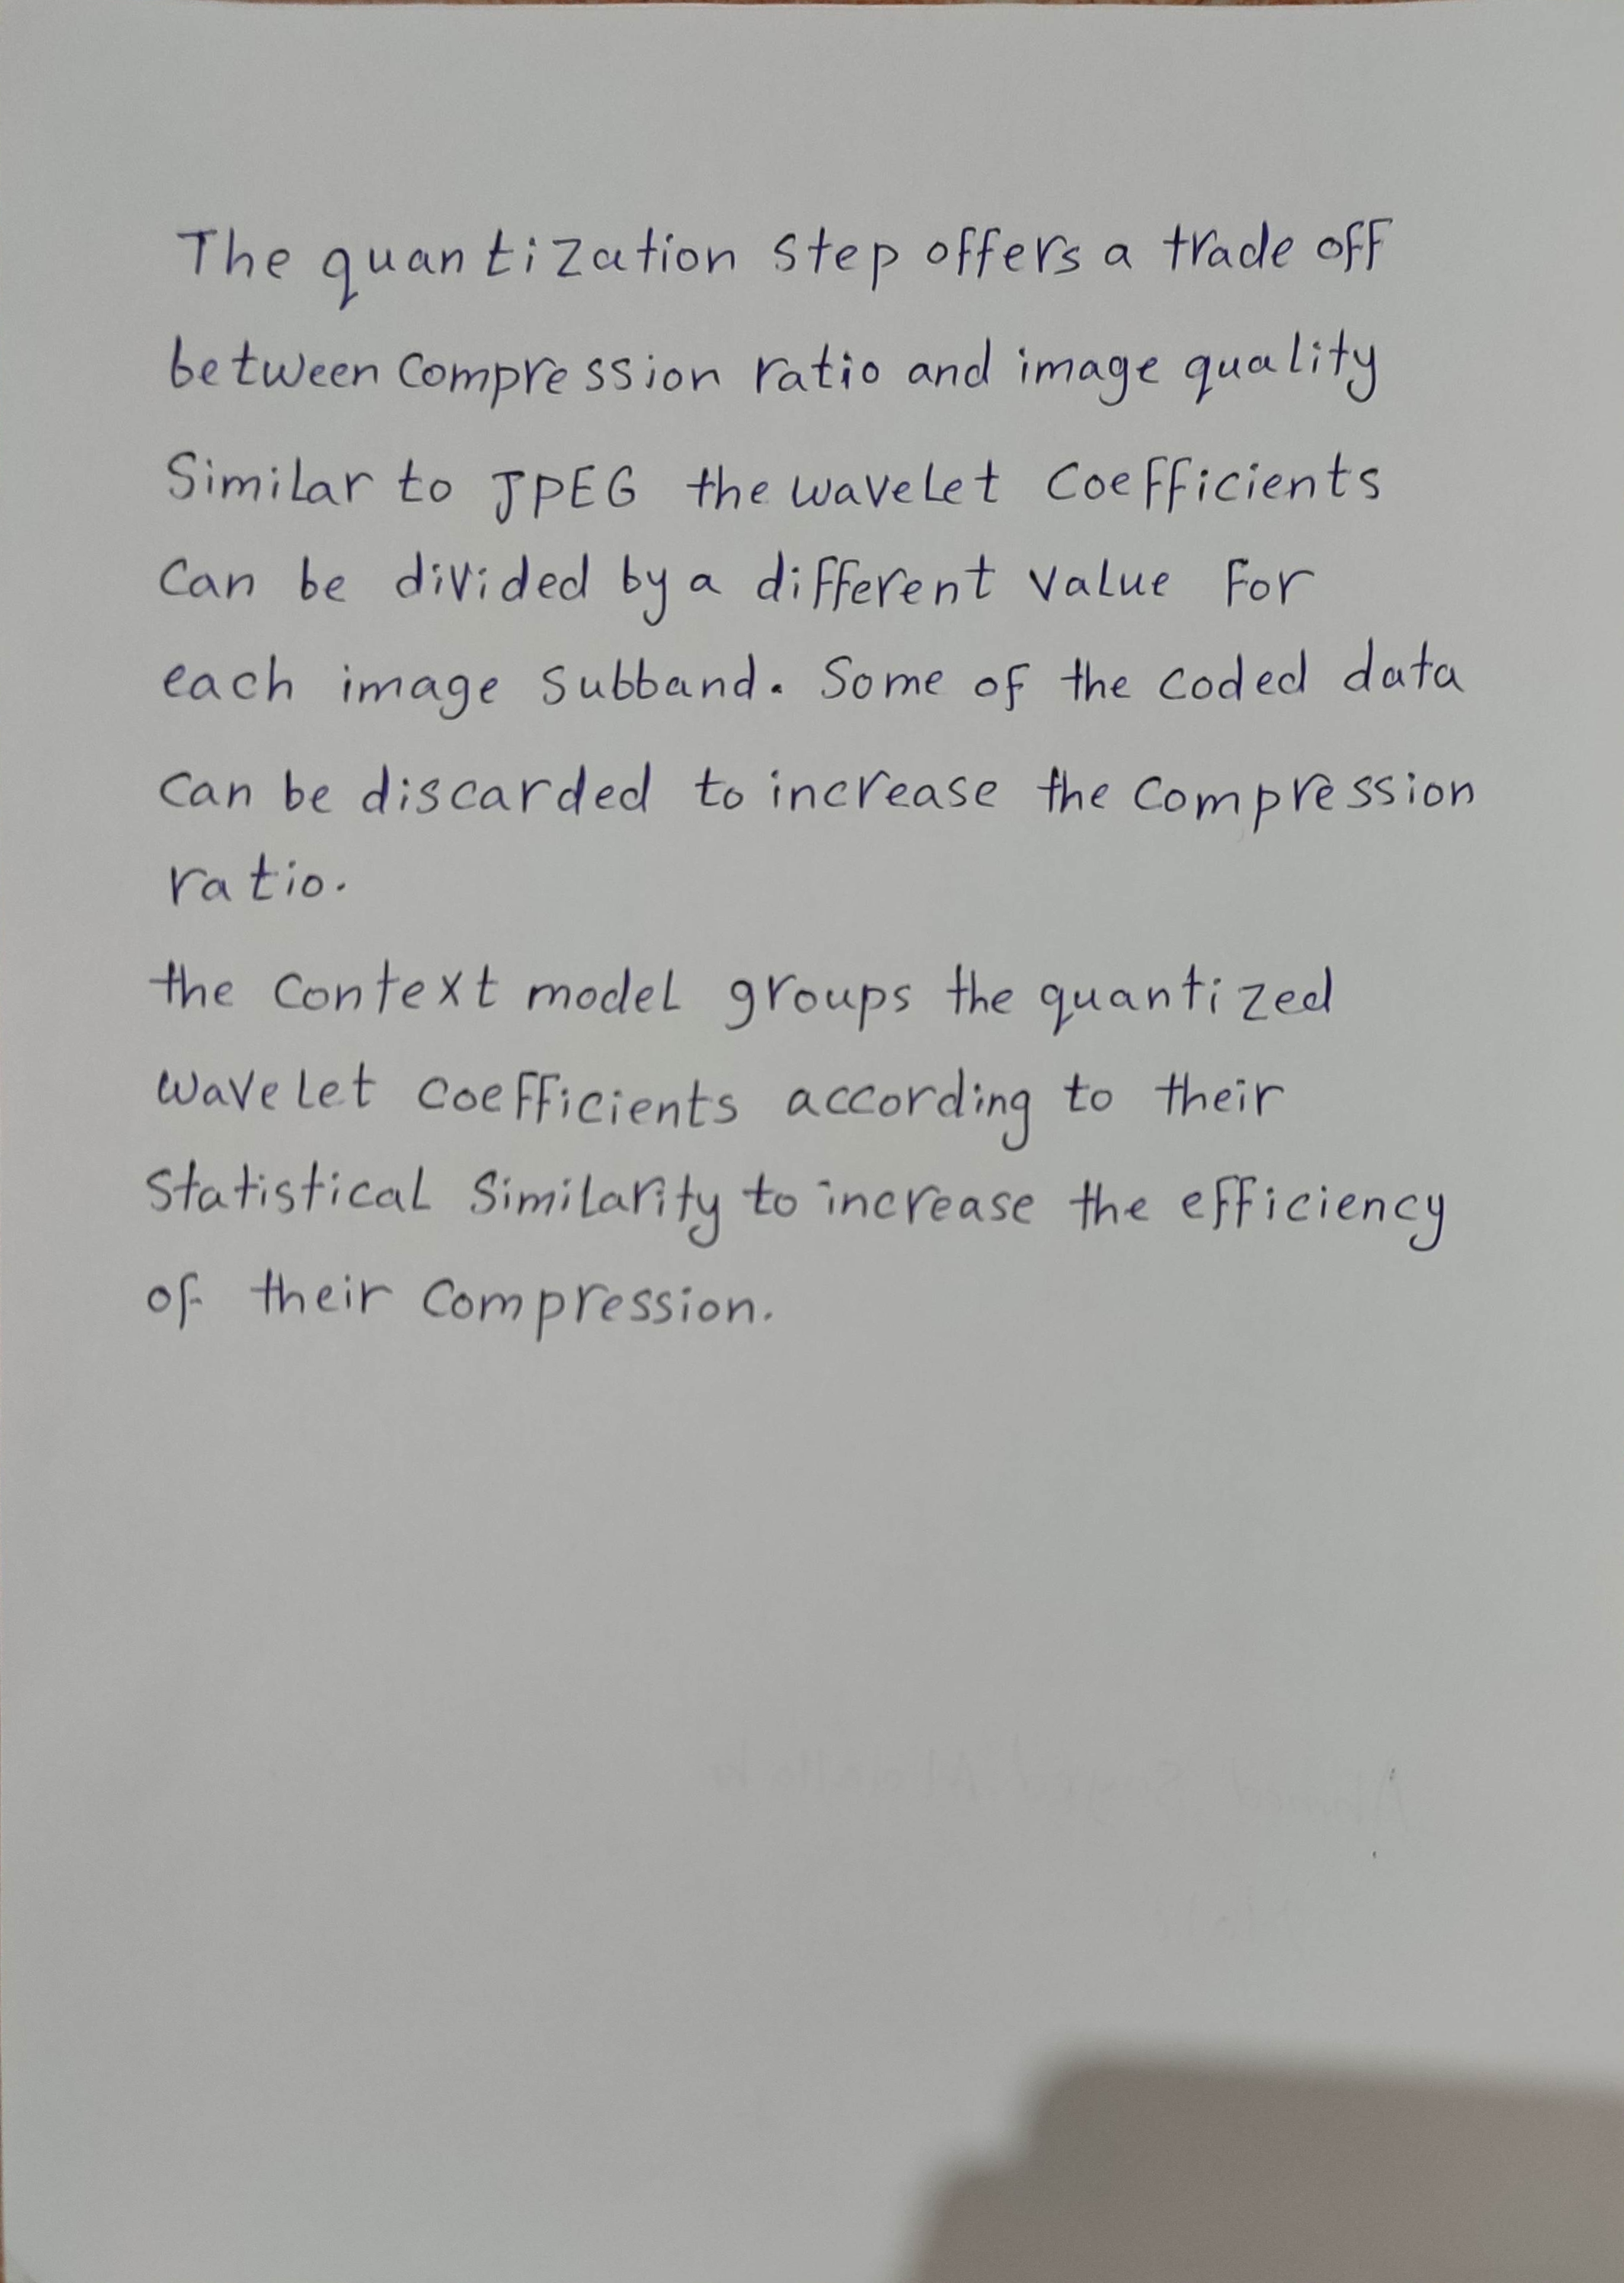 The quantization step offers a trade off
between compression ratio and image quality
Similar to JPEG the wavelet coefficients
can be divided by a different value for
each image subband. Some of the coded data
can be discarded to increase the compression
ratio.
the context model groups the quantized
wavelet coefficients according to their
statistical similarity to increase the efficiency
of their compression.